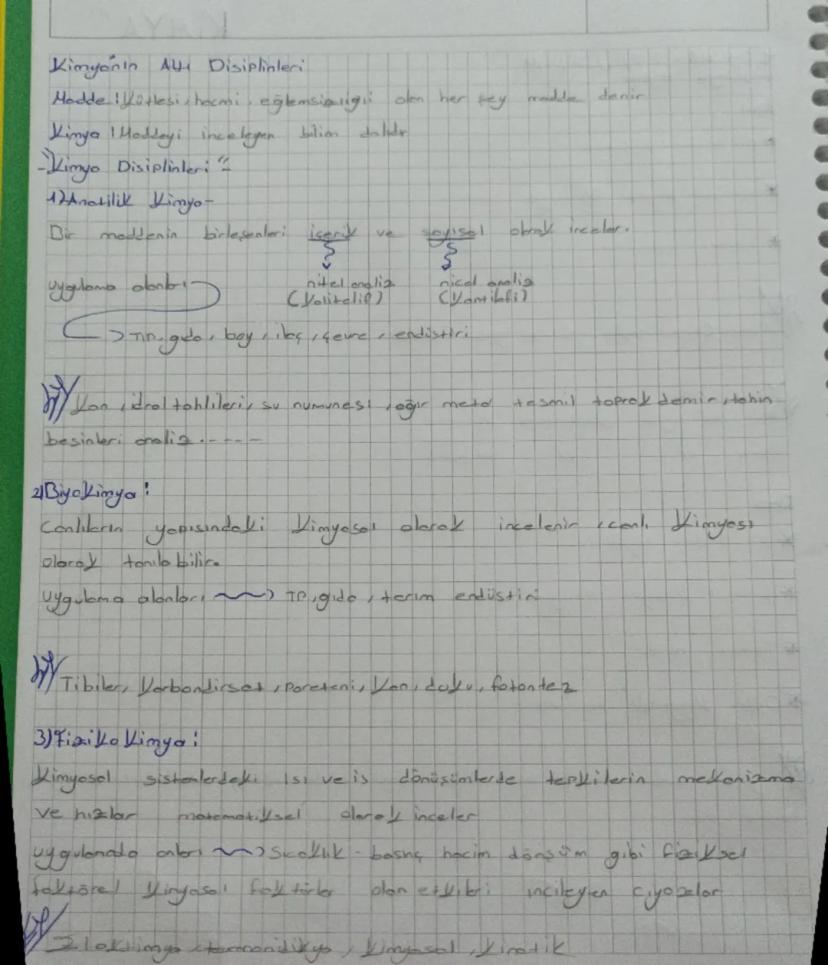 Kimyanın Alt Disiplinleri
Madde: Kütlesi, hacmi, eğlemsizliği olan her şey madde denir
Kimya: Maddeyi inceleyen bilim dalıdır
-"Kimya Disiplinleri"-
1) Anatilik Kimya-
Bir maddenin birleşenleri içerik ve sayısal olarak inceler.
uygulama alanları
nitel analiz nicel analiz
(Kalitatif) (Kantitatif)
→ Tıp, gıda, boy, ilaç, çevre, endüstiri
Kan, idral tahlileri, su numunesi, ağır metal toprak demir, tahin
besinleri analiz.----
2) Biyokimya:
Canlıların yapısındaki kimyasal olarak incelenir, canlı kimyası
olarak tanılabilir.
uygulama alanları → Tıp, gıda, tarım endüstiri
Karbondirsat, poreteni, kan, doku, fotontez
3) Fizikokimya:
Kimyasal sistemlerdeki ısı ve iş dönüşümlerde tepkilerin mekanizma
ve hızlar matematiksel olarak inceler
→ Sıcaklık- basınç hacim dönüşüm gibi fiziksel
kimyasal faktörler olan inciləyen
kimyasal, kinetik